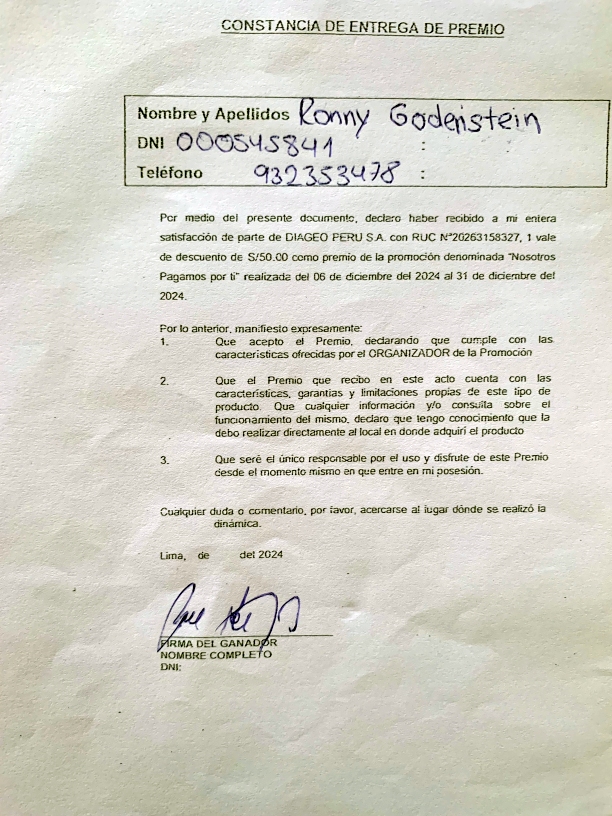 CONSTANCIA DE ENTREGA DE PREMIO
Nombre y Apellidos Ronny Godenstein
DNI 000545841 :
Teléfono 932353478 :
Por medio del presente documento, declaro haber recibido a mi entera
satisfacción de parte de DIAGEO PERU S.A. con RUC N°20263158327, 1 vale
de descuento de S/50.00 como premio de la promoción denominada "Nosotros
Pagamos por ti" realizada del 06 de diciembre del 2024 al 31 de diciembre del
2024.
Por lo anterior, manifiesto expresamente:
1. Que acepto el Premio, declarando que cumple con las
características ofrecidas por el ORGANIZADOR de la Promoción
2. Que el Premio que recibo en este acto cuenta con las
características, garantías y limitaciones propias de este tipo de
producto. Que cualquier información y/o consulta sobre el
funcionamiento del mismo, declaro que tengo conocimiento que la
debo realizar directamente al local en donde adquirí el producto
3. Que seré el único responsable por el uso y disfrute de este Premio
desde el momento mismo en que entre en mi posesión.
Cualquier duda o comentario, por favor, acercarse al lugar dónde se realizó la
dinámica.
Lima, de del 2024
FIRMA DEL GANADOR
NOMBRE COMPLETO
DNI: